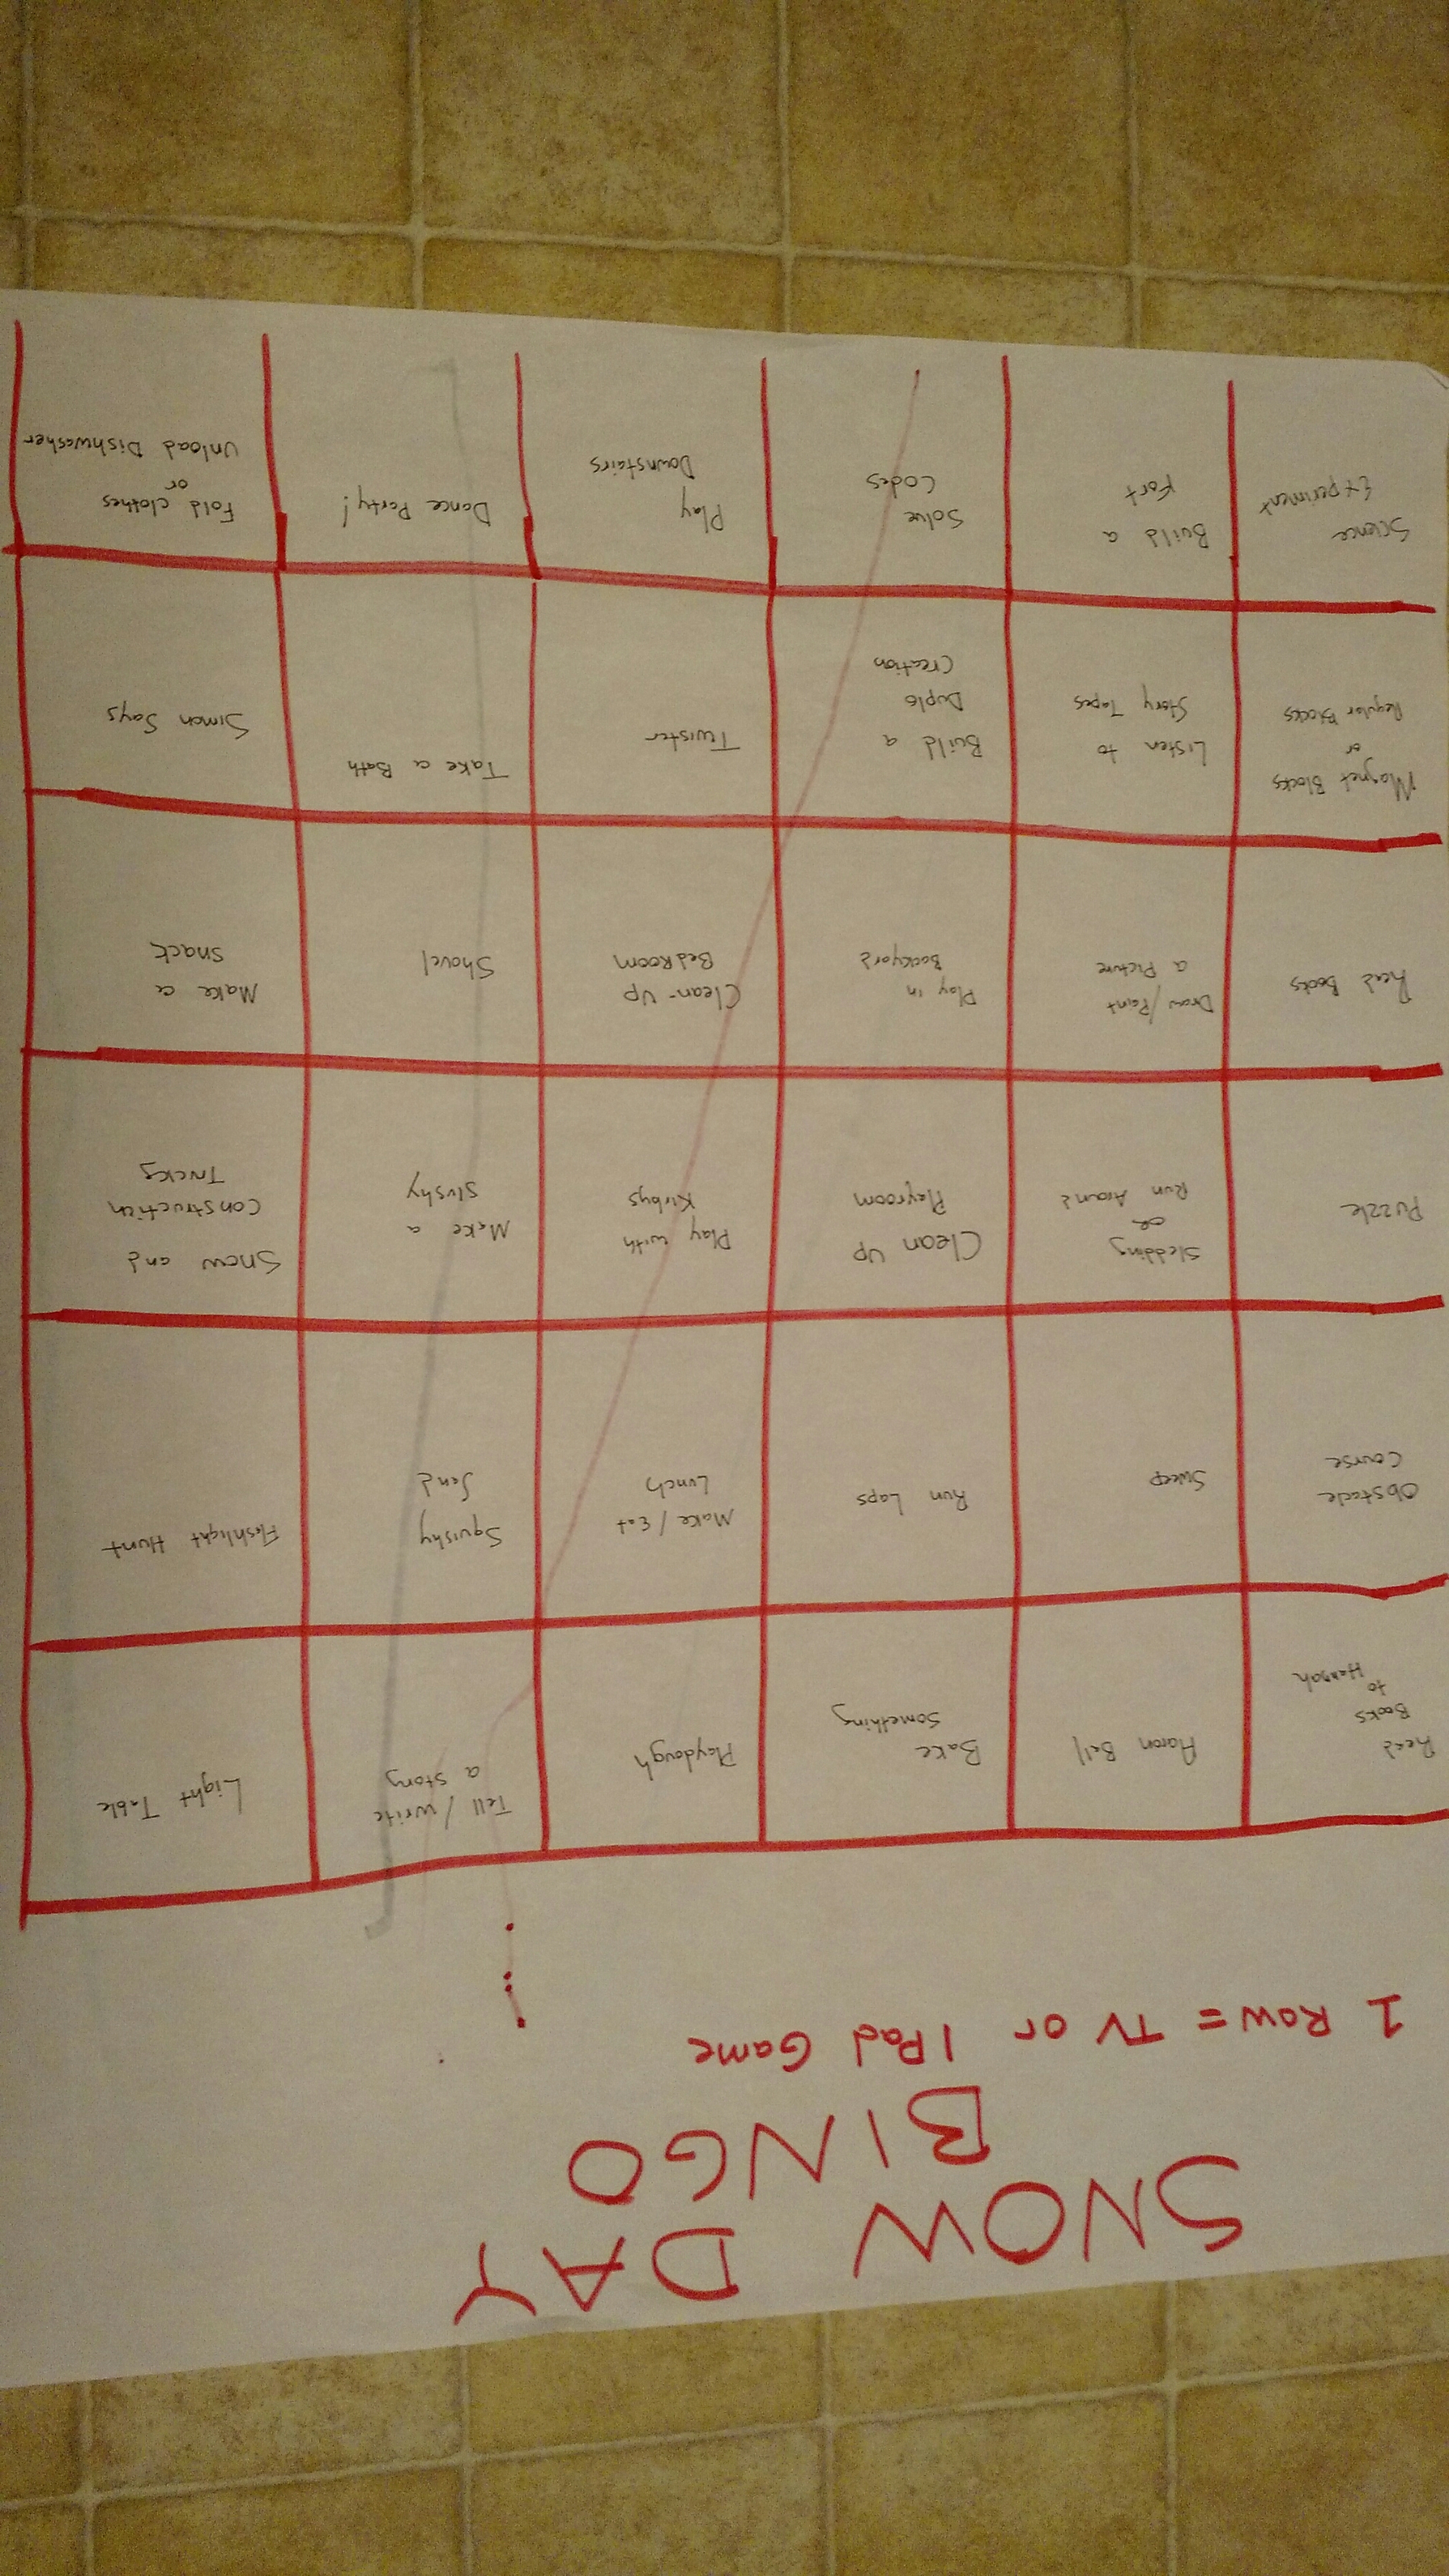 SNOW DAY
BINGO
1 Row = TV or IPad Game
Read
Books
to
Hannah
Aaron Bell
Bake
Something
Playdough
Tell / write
a story
Light Table
Obstacle
Course
Sweep
Run Laps
Make / Eat
Lunch
Squishy
Sand
Flashlight Hunt
Puzzle
Sledding
or
Run Around
Clean Up
Playroom
Play with
Kirbys
Make a
Slushy
Snow and
Construction
Trucks
Read Books
Draw/Paint
a Picture
Play in
Backyard
Clean-Up
BedRoom
Shovel
Make a
snack
Magnet Blocks
or
Regular Blocks
Listen to
Story Tapes
Build a
Duplo
Creation
Twister
Take a Bath
Simon Says
Science
Experiment
Build a
Fort
Solve
Codes
Play
Downstairs
Dance Party!
Fold clothes
or
Unload Dishwasher